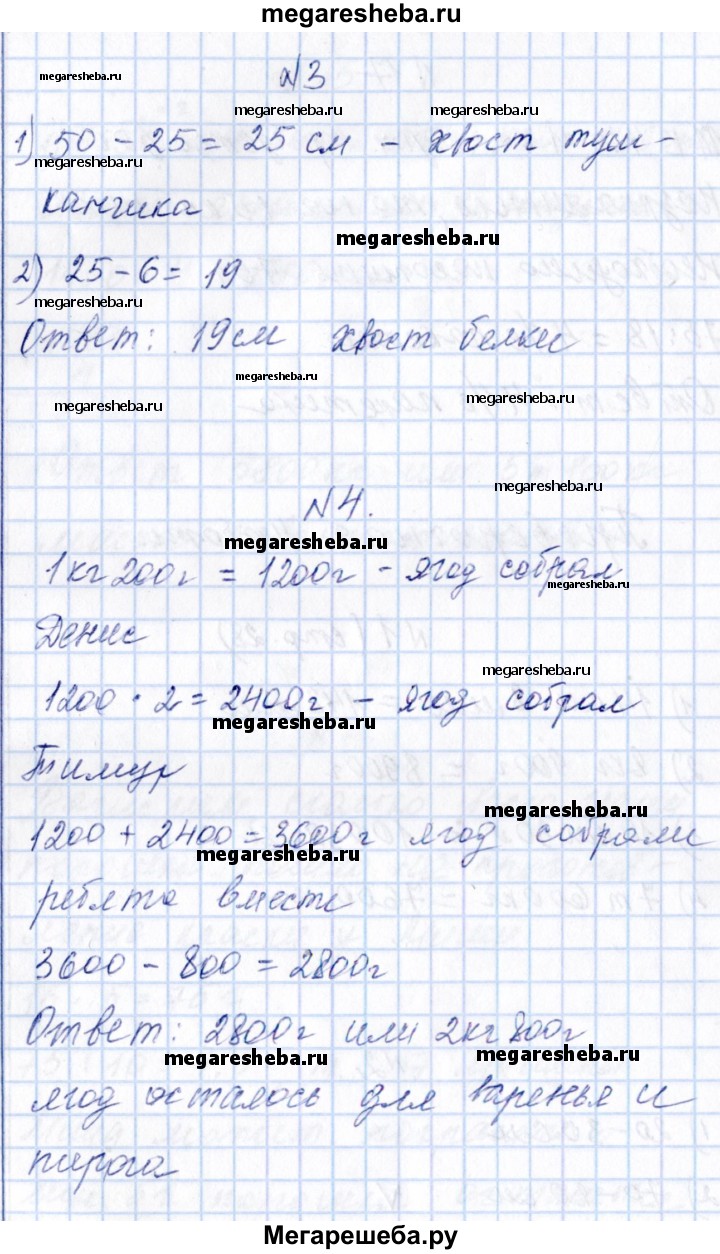 megaresheba.ru
№3
megaresheba.ru
megaresheba.ru megaresheba.ru
1) 50 - 25 = 25 см - хвост туш-
megaresheba.ru
канчика
megaresheba.ru
2) 25 - 6 = 19
megaresheba.ru
Ответ: 19 см хвост белки
megaresheba.ru
megaresheba.ru megaresheba.ru
megaresheba.ru
№4.
megaresheba.ru
1 кг 200 г = 1200 г - ягод собрал
megaresheba.ru
Денис
megaresheba.ru
1200 · 2 = 2400 г - ягод собрал
megaresheba.ru
Тимур
megaresheba.ru
1200 + 2400 = 3600 г ягод собрали
megaresheba.ru
ребята вместе
3600 - 800 = 2800 г
Ответ: 2800 г или 2 кг 800 г
megaresheba.ru megaresheba.ru
ягод осталось для варенья и
пирога
Мегарешеба.ру